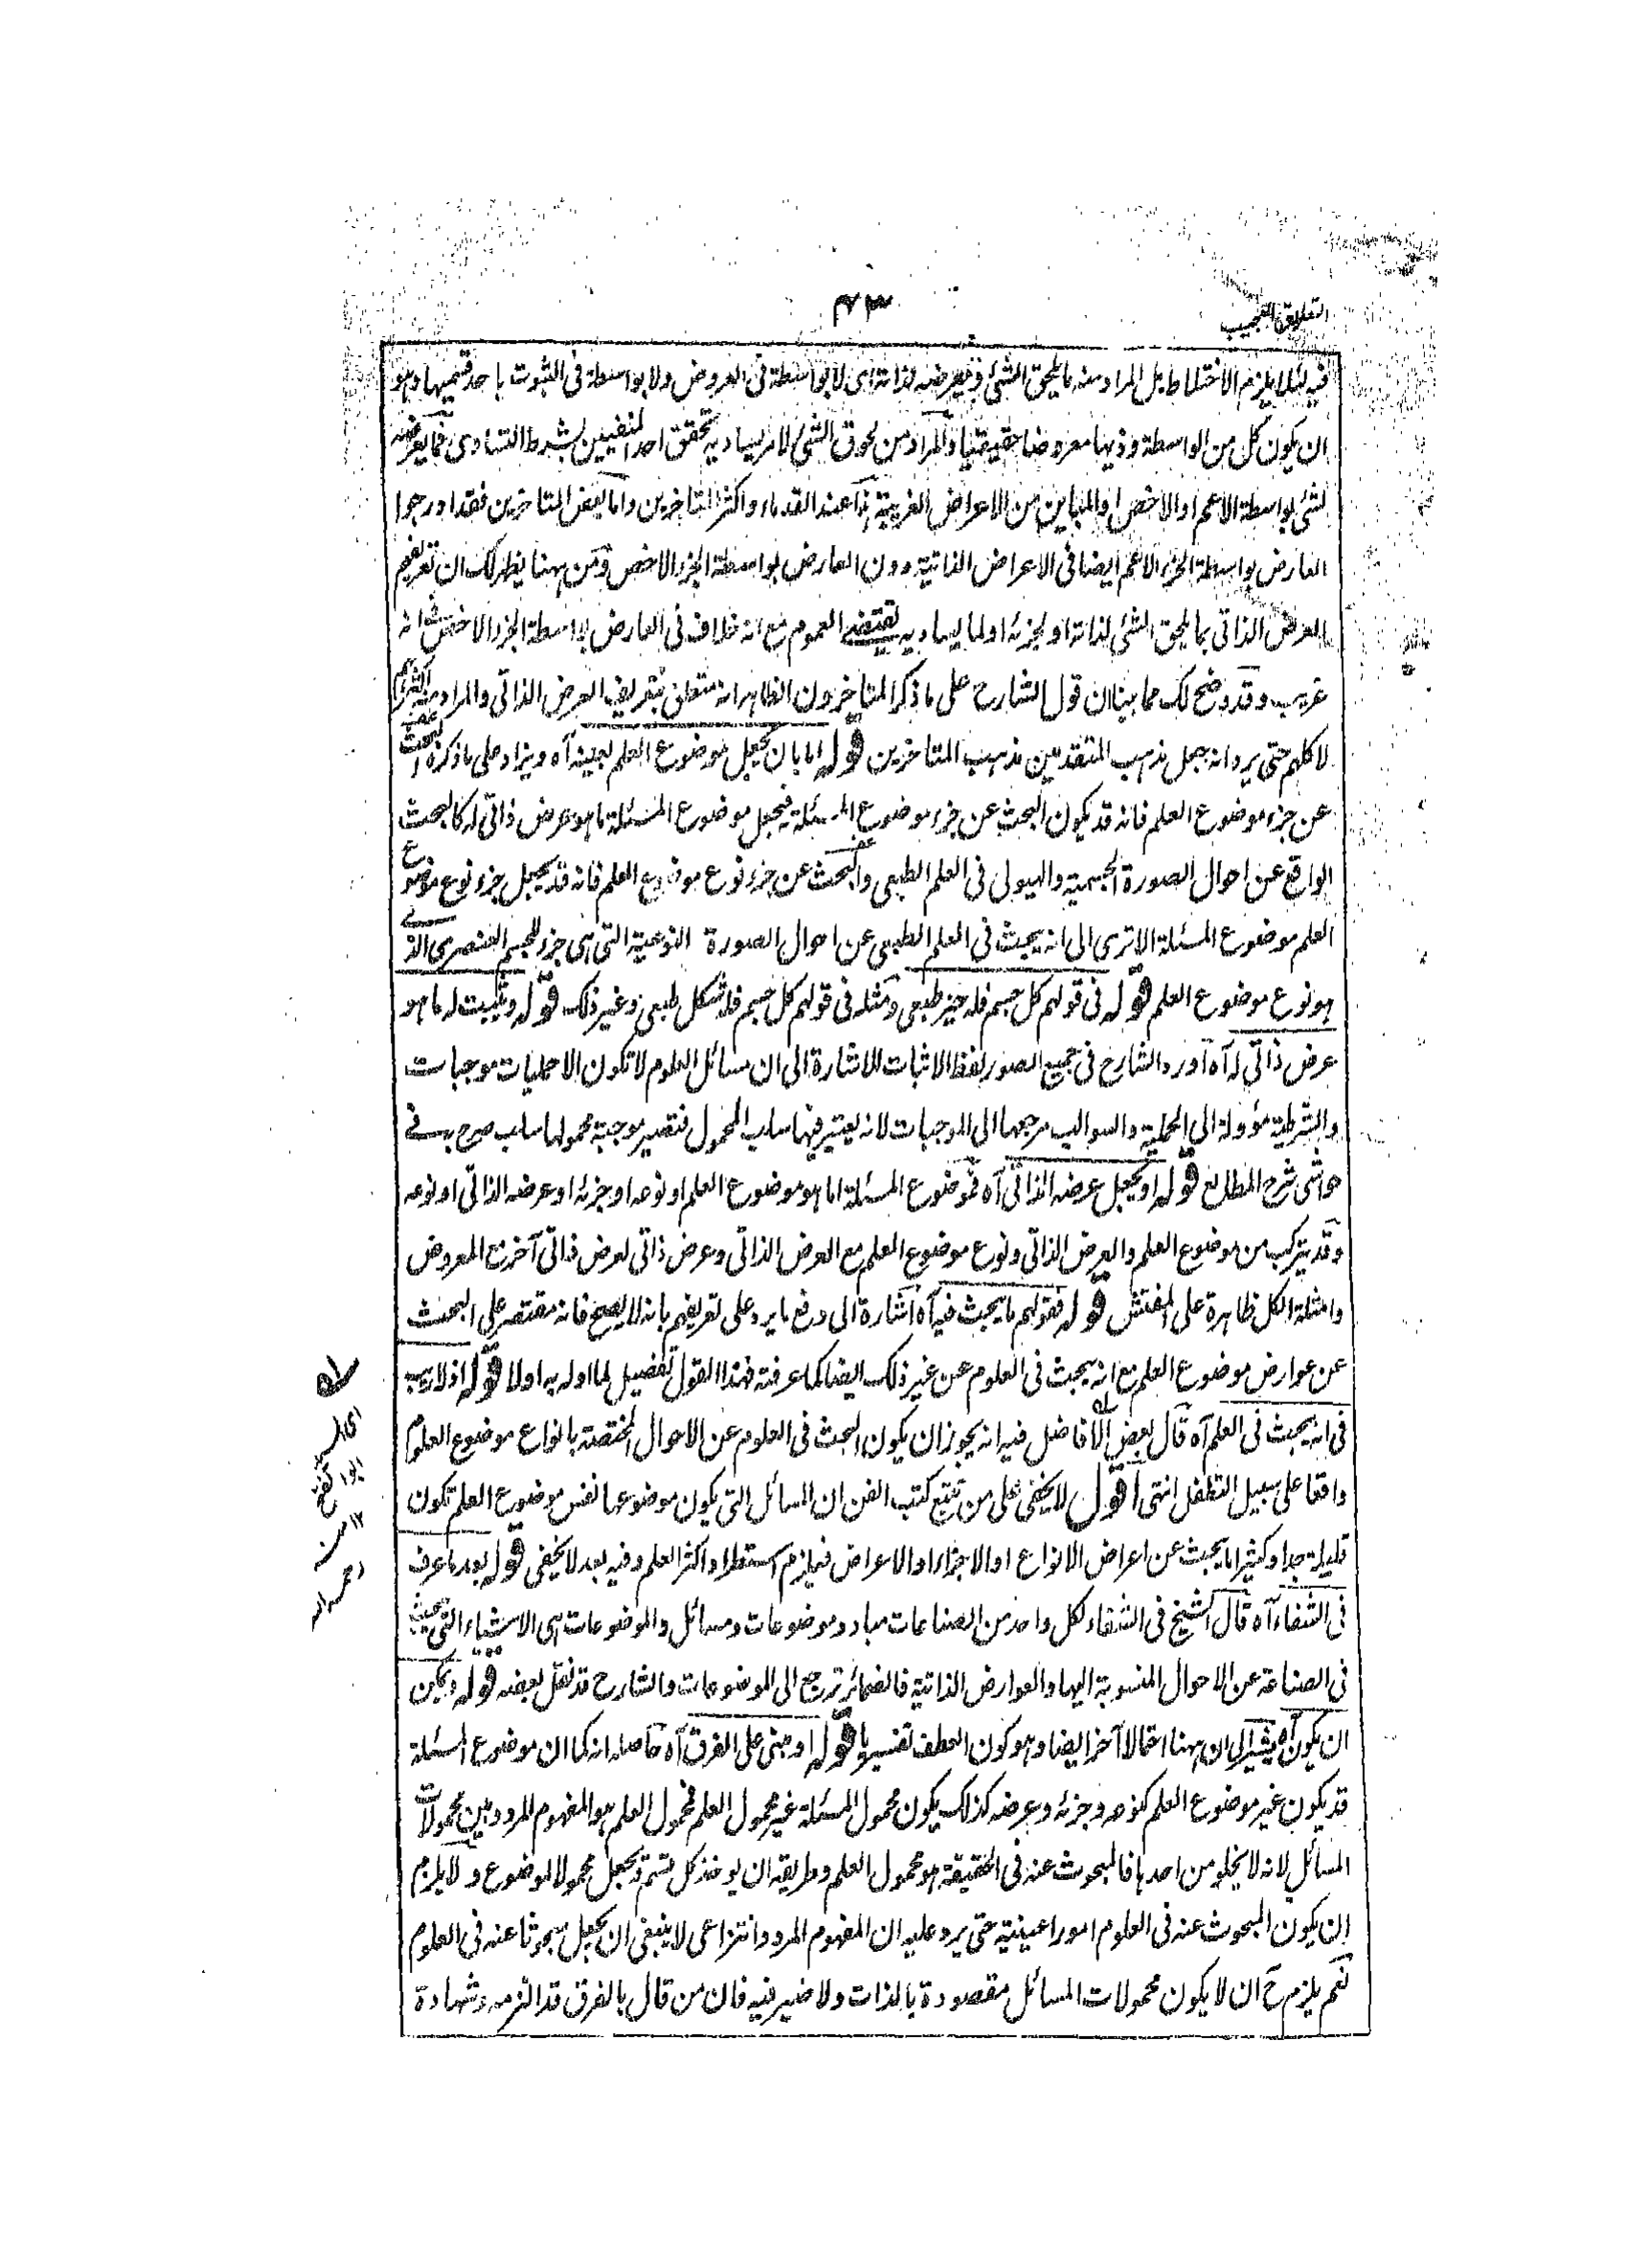 التعليق العجيب
٤٣
فيه لئلا يلزم الاختلاط بل المراد منه ما يلحق الشئ ويعرضه لذاته اى لا بواسطة فى العروض ولا بواسطة فى الثبوت باحد قسميها وهو
ان يكون كل من الواسطة وذيها معروضا حقيقيا والمراد من لحوق الشئ لامر يساويه تحقق احد المنفيين بشرط التساوى فما يعرضه
لشئ بواسطة الاعم او الاخص او المباين من الاعراض الغريبة هذا عند القدماء واكثر المتاخرين واما بعض المتاخرين فقد ادرجوا
العارض بواسطة الجزء الاعم ايضا فى الاعراض الذاتية دون العارض بواسطة الجزء الاخص ومن ههنا يظهر لك ان تعريفهم
العرض الذاتى بما يلحق الشئ لذاته او لجزئه او لما يساويه يقتضى العموم مع انه خلاف فى العارض بواسطة الجزء الاخص انه
غريب وقد وضح لك مما بينا ان قول الشارح على ما ذكر المتاخرون الظاهر انه متعلق بتعريف العرض الذاتى والمراد منه اكثرهم
لا كلهم حتى يرد انه جعل مذهب المتقدمين مذهب المتاخرين قوله اما بان يجعل موضوع العلم بعينه آه ويزاد على ما ذكره البحث
عن جزء موضوع العلم فانه قد يكون البحث عن جزء موضوع المسئلة فيجعل موضوع المسئلة ما هو عرض ذاتى له كالبحث
الواقع عن احوال الصورة الجسمية والهيولى فى العلم الطبعى والبحث عن جزء نوع موضوع العلم فانه قد يجعل جزء نوع موضوع
العلم موضوع المسئلة الا ترى الى انه يبحث فى العلم الطبعى عن احوال الصورة النوعية التى هى جزء للجسم العنصرى الذى
هو نوع موضوع العلم قوله فى قولهم كل جسم فله حيز طبعى ومثله فى قولهم كل جسم فله شكل طبعى وغير ذلك قوله ويثبت له ما هو
عرض ذاتى له آه اورد الشارح فى جميع الصور لفظ الاثبات للاشارة الى ان مسائل العلوم لا تكون الا حمليات موجبات
والشرطية مؤولة الى الحملية والسوالب مرجعها الى الموجبات لانه يعتبر فيها سلب المحمول فتصير موجبة محمولها سلب صرح به فى
حواشى شرح المطالع قوله او يجعل عرضه الذاتى آه فموضوع المسئلة اما هو موضوع العلم او نوعه او جزئه او عرضه الذاتى او نوعه
وقد يتركب من موضوع العلم والعرض الذاتى ونوع موضوع العلم مع العرض الذاتى وعرض ذاتى لعرض ذاتى آخر مع المعروض
وامثلة الكل ظاهرة على المفتش قوله فقولهم ما يبحث فيه آه اشارة الى دفع ما يرد على تعريفهم بانه لا يصح فانه مقتصر على البحث
عن عوارض موضوع العلم مع انه يبحث فى العلوم عن غير ذلك ايضا كما عرفته فهذا القول تفصيل لما اوله به اولا قوله اذ لا ريب
فى انه يبحث فى العلم آه قال بعض الافاضل فيه انه يجوز ان يكون البحث فى العلوم عن الاحوال المختصة بانواع موضوع العلوم
واقعا على سبيل التطفل انتهى اقول لا يخفى على من تتبع كتب الفن ان المسائل التى يكون موضوعها نفس موضوع العلم تكون
قليلة جدا وكثيرا ما يبحث عن اعراض الانواع او الاجزاء او الاعراض فيلزم استطرادا اكثر العلم وفيه بعد لا يخفى قوله بعد ما عرف
فى الشفاء آه قال الشيخ فى الشفاء لكل واحد من الصناعات مباد وموضوعات ومسائل والموضوعات هى الاشياء التى يبحث
فى الصناعة عن الاحوال المنسوبة اليها والعوارض الذاتية فالضمائر ترجع الى الموضوعات والشارح قد نقل بعضه قوله ويمكن
ان يكون آه يشير الى ان ههنا احتمالا آخر ايضا وهو كون العطف تفسيريا قوله او مبنى على الفرق آه حاصله انه كما ان موضوع المسئلة
قد يكون غير موضوع العلم كنوعه وجزئه وعرضه كذلك يكون محمول المسئلة غير محمول العلم فمحمول العلم هو المفهوم المردد بين محمولات
المسائل لانه لا يخلو من احدها فالمبحوث عنه فى الحقيقة هو محمول العلم وطريقه ان يوخذ كل قسم ويجعل محمولا لموضوع ولا يلزم
ان يكون المبحوث عنه فى العلوم امورا عينية حتى يرد عليه ان المفهوم المردد انتزاعى لا ينبغى ان يجعل مبحوثا عنه فى العلوم
نعم يلزم ح ان لا يكون محمولات المسائل مقصودة بالذات ولا ضير فيه فان من قال بالفرق قد التزمه وشهادة
اى السيد
ابو الفتح
١٢ منه
رحمه الله